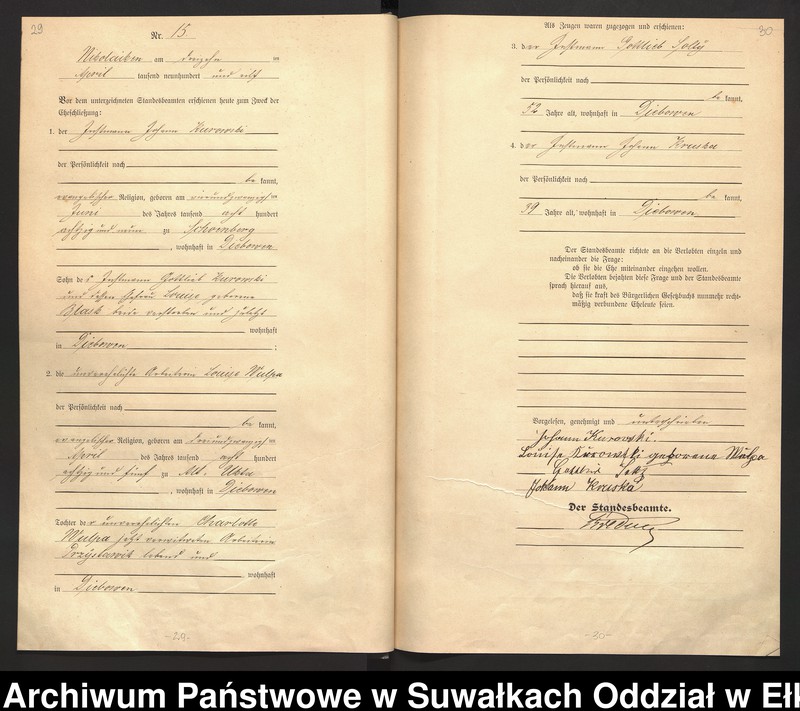 29
Nr. 15
Nikolaiken am dreizehn
April tausend neunhundert und elf
Vor dem unterzeichneten Standesbeamten erschienen heute zum Zweck der
Eheschließung:
1. der Instmann Johann Kurowski
der Persönlichkeit nach
be kannt,
evangelischer Religion, geboren am vierundzwanzigsten
Juni des Jahres tausend acht hundert
achtzig und neun zu Schoenberg
, wohnhaft in Dieboween
Sohn des Instmann Gottlieb Kurowski
und dessen Ehefrau Louise geborene
beide verstorben und zuletzt
wohnhaft
in Dieboween ;
2. die unverehelichte Arbeiterin Louise Wulpa
der Persönlichkeit nach
be kannt,
evangelischer Religion, geboren am
April des Jahres tausend acht hundert
achtzig und fünf zu Alt-Ukta
, wohnhaft in Dieboween
Tochter der unverehelichten Charlotte
Wulpa jetzt verwitweten Arbeiterin
lebend und
wohnhaft
in Dieboween
-29-
30
Als Zeugen waren zugezogen und erschienen:
3. der Instmann Gottlieb
der Persönlichkeit nach
be kannt,
52 Jahre alt, wohnhaft in Dieboween
4. der Instmann Johann Kruska
der Persönlichkeit nach
be kannt,
39 Jahre alt, wohnhaft in Dieboween
Der Standesbeamte richtete an die Verlobten einzeln und
nacheinander die Frage:
ob sie die Ehe miteinander eingehen wollen.
Die Verlobten bejahten diese Frage und der Standesbeamte
sprach hierauf aus,
daß sie kraft des Bürgerlichen Gesetzbuchs nunmehr recht-
mäßig verbundene Eheleute seien.
Vorgelesen, genehmigt und unterschrieben
Johann Kurowski.
Louise Kurowski geborene Wulpa
Gottlieb
Johann Kruska
Der Standesbeamte.
-30-
Archiwum Państwowe w Suwałkach Oddział w Ełk